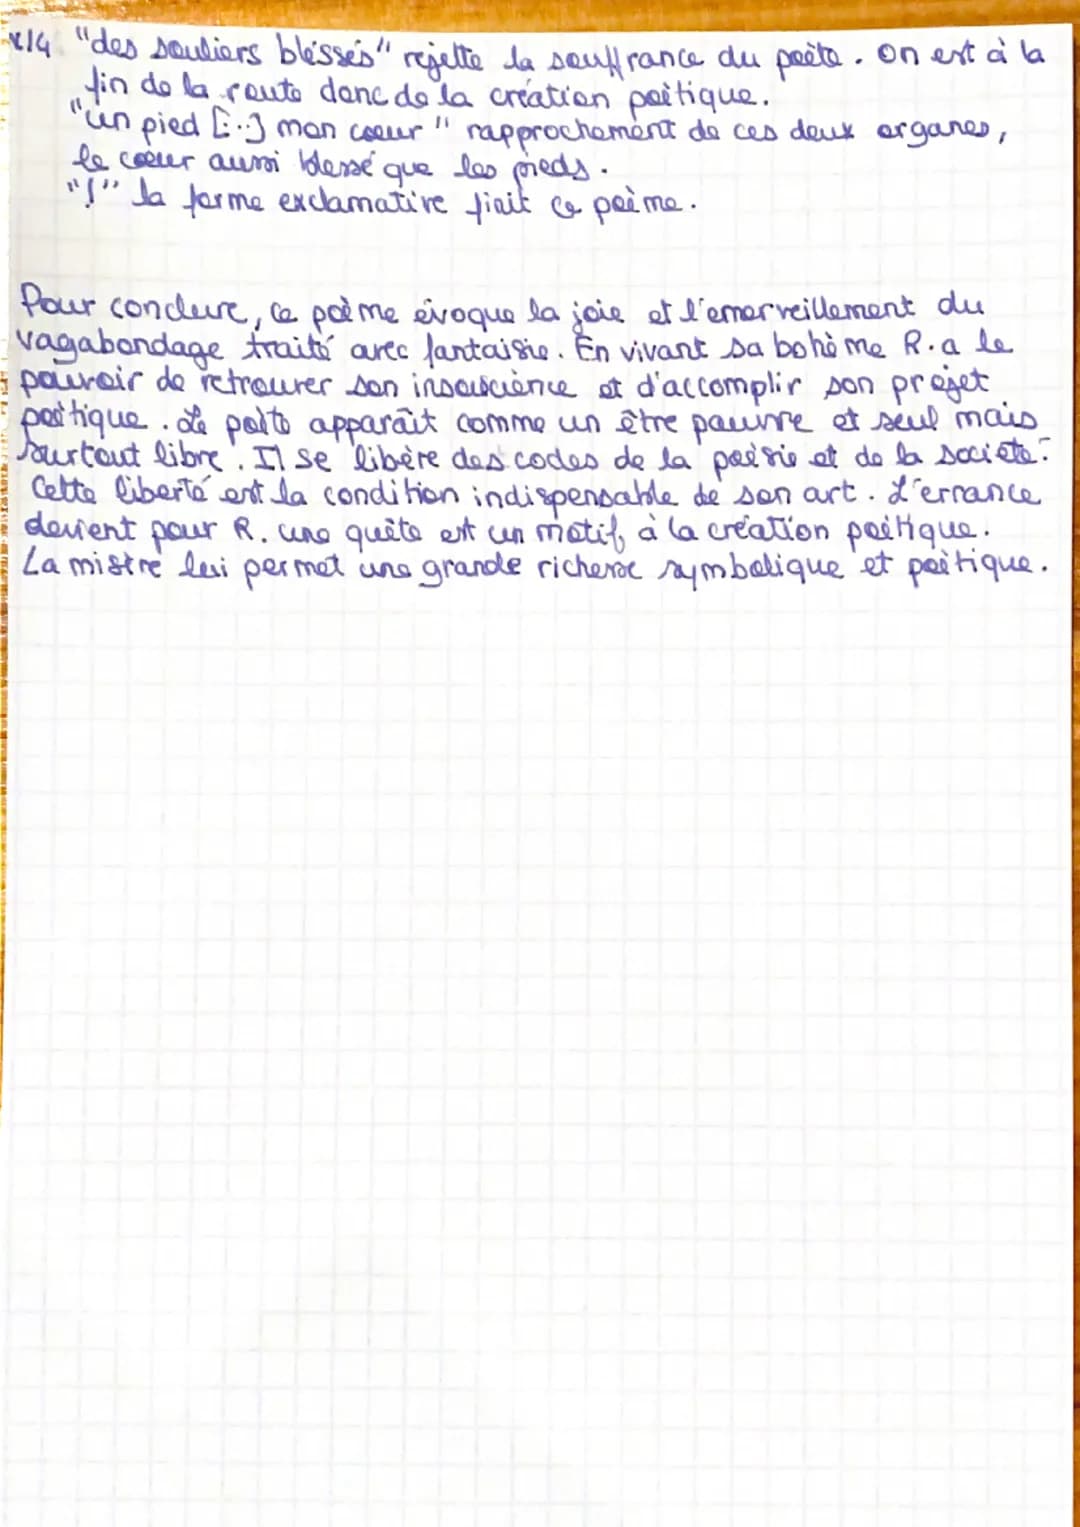 x14 "des souliers blessés" rejette la souffrance du poète. On est à la
fin de la route donc de la création poétique.
"un pied [...] mon coeur" rapprochement de ces deux organes,
le coeur aussi blessé que les pieds.
"!" la forme exclamative finit ce poème.
Pour conclure, ce poème évoque la joie et l'émerveillement du
vagabondage traité avec fantaisie. En vivant sa bohème R. a le
pouvoir de retrouver son insouscience et d'accomplir son projet
poétique. Le poète apparaît comme un être pauvre et seul mais
surtout libre. Il se libère des codes de la poésie et de la société.
Cette liberté est la condition indispensable de son art. L'errance
devient pour R. une quête est un motif à la création poétique.
La misère lui permet une grande richesse symbolique et poètique.